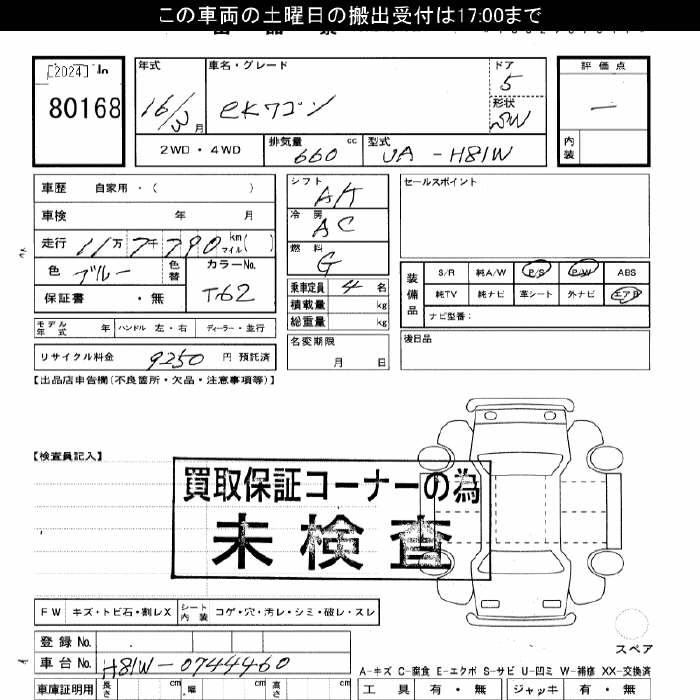 この車両の土曜日の搬出受付は17:00まで
[2024]
80168
年式
16/3月
車名・グレード
eKワゴン
ドア
5
形状
SW
評価点
—
内装
2WD・4WD
排気量
660 cc
型式
UA-H81W
車歴 自家用・( )
車検 年 月
走行 11万7千790 km マイル( )
色 ブルー
色替
カラーNo.
T62
保証書 ・無
シフト
AT
冷房
AC
燃料
G
乗車定員 4名
積載量 kg
総重量 kg
セールスポイント
装備品
S/R 純A/W P/S P/W ABS
純TV 純ナビ 革シート 外ナビ エアB
ナビ型番:
モデル年式 年 ハンドル 左・右 ディーラー・並行
名変期限
月 日
後日品
リサイクル料金 9250 円 預託済
【出品店申告欄(不良箇所・欠品・注意事項等)】
【検査員記入】
買取保証コーナーの為
未検査
FW キズ・トビ石・割レX シート内装 コゲ・穴・汚レ・シミ・破レ・スレ
スペア
登録 No.
車台 No. H81W-0744460
A-キズ C-腐食 E-エクボ S-サビ U-凹ミ W-補修 XX-交換済
車庫証明用 長さ cm 幅 cm 高さ cm
工具 有・無 ジャッキ 有・無